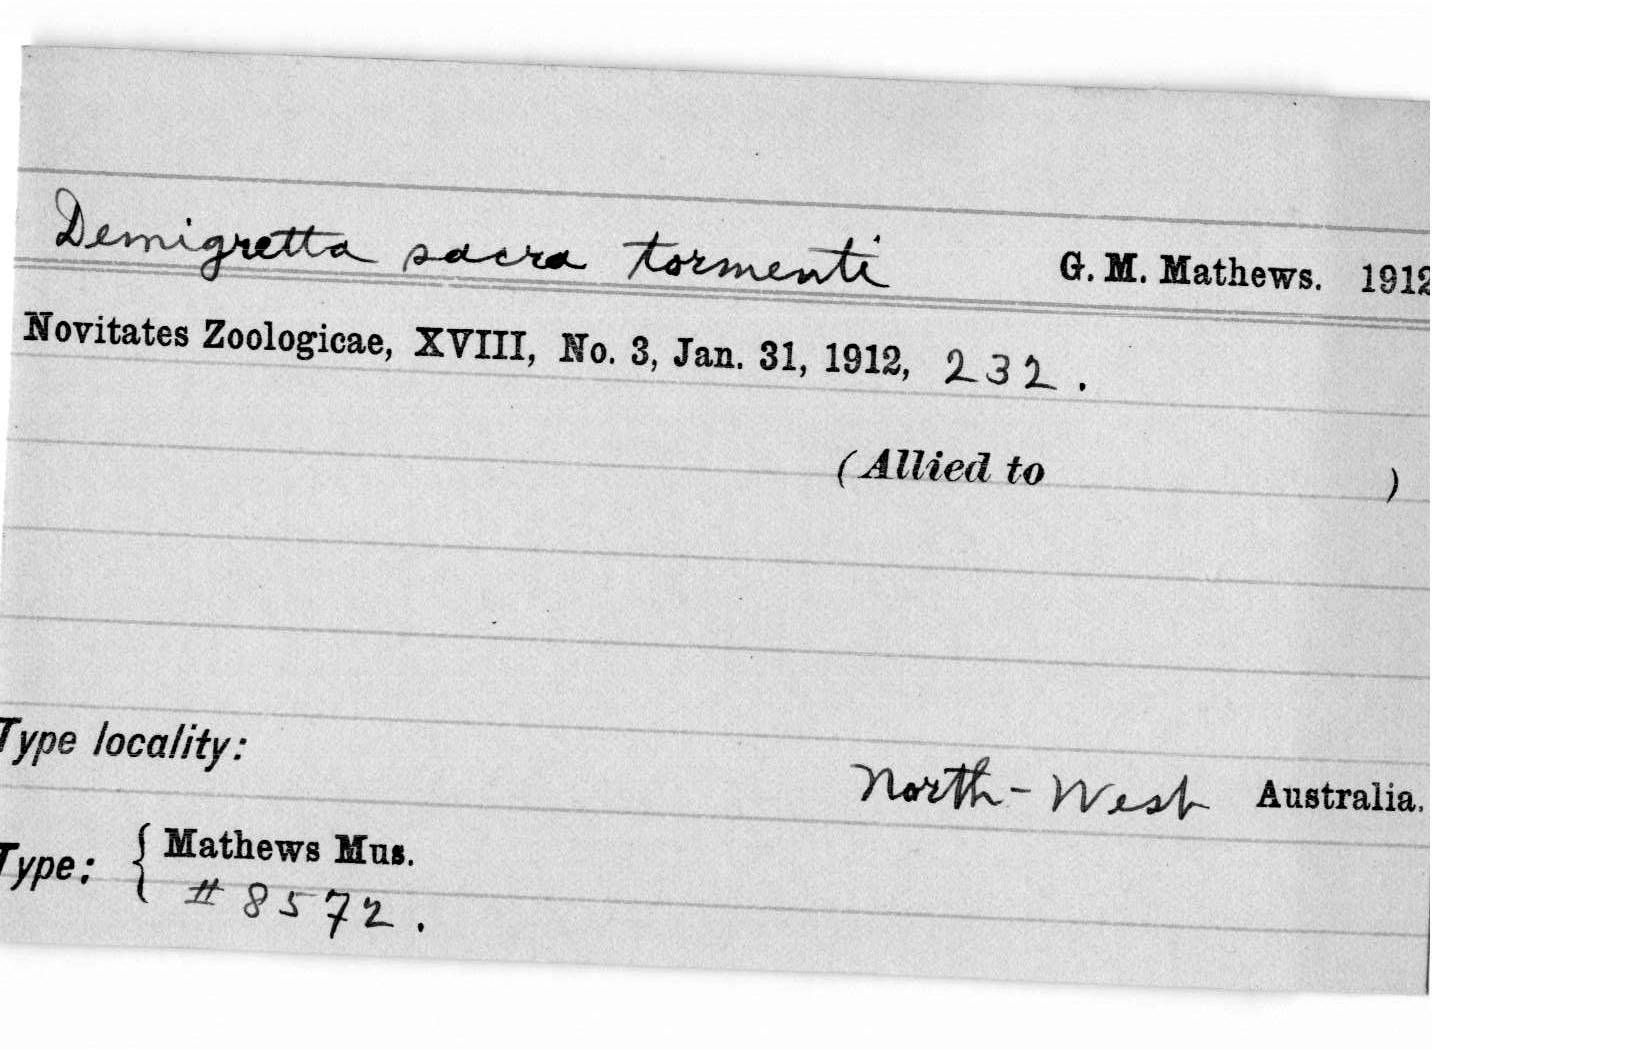 Demigretta sacra tormenti G. M. Mathews. 1912
Novitates Zoologicae, XVIII, No. 3, Jan. 31, 1912, 232.
(Allied to )
Type locality:
North-West Australia.
Type: { Mathews Mus.
# 8572.